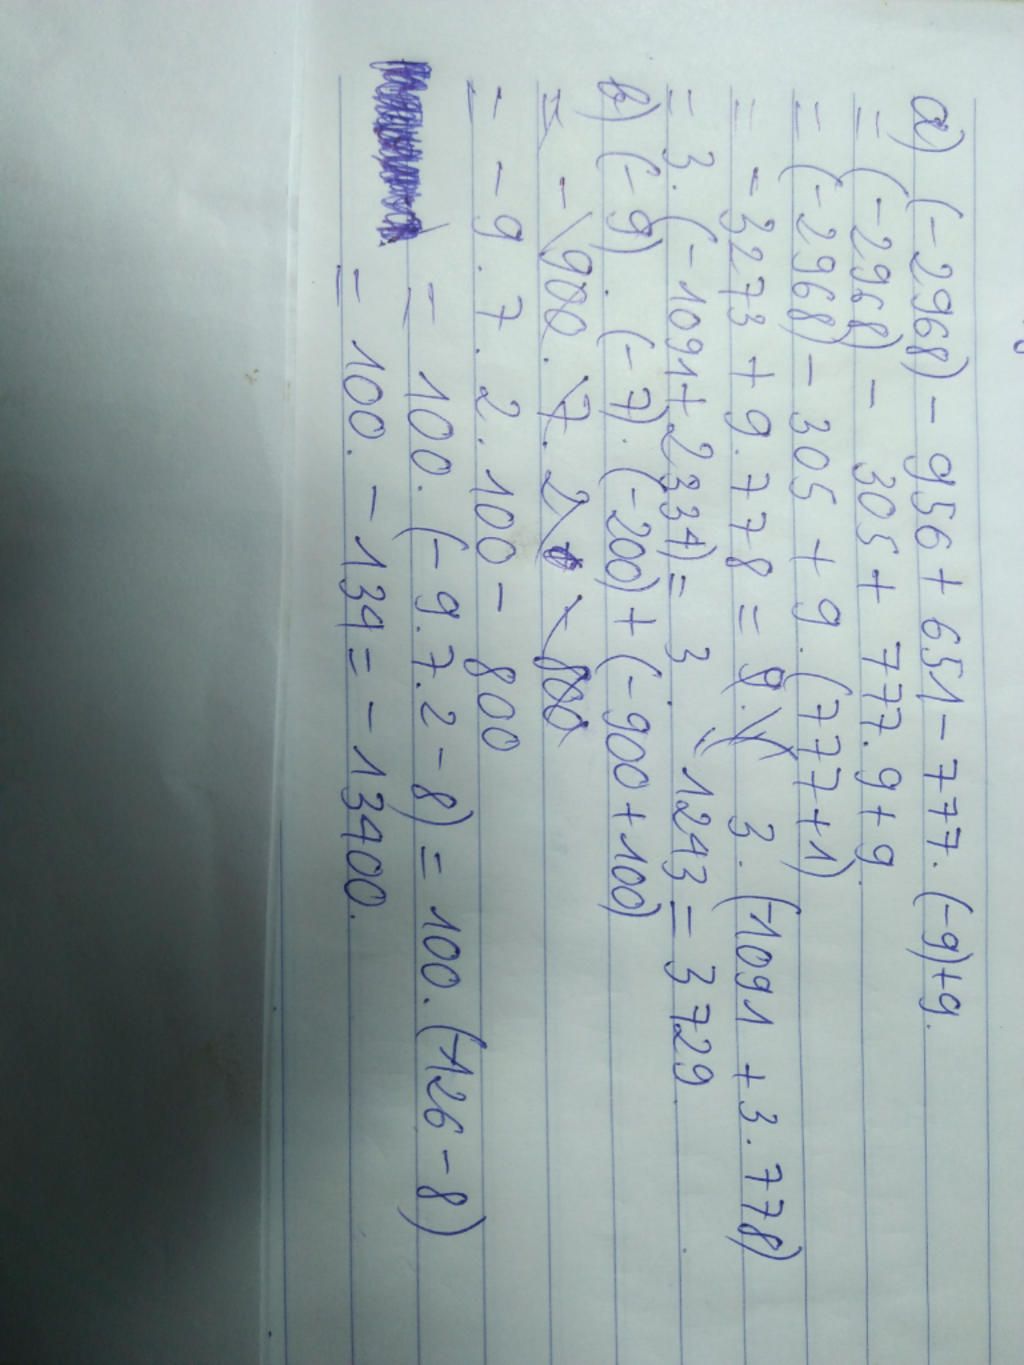 a) (-2968) - 956 + 651 - 777. (-9)+9.
= (-2968) - 305 + 777. 9 + 9
= (-2968) - 305 + 9. (777+1)
= -3273 + 9. 778 = 3. (-1091 + 3. 778)
= 3. (-1091 + 2334) = 3. 1243 = 3729
b) (-9). (-7). (-200) + (-900 + 100)
= - 900. 7. 2 - 800
= - 9. 7. 2. 100 - 800
= 100. (-9. 7. 2 - 8) = 100. (-126 - 8)
= 100. - 134 = - 13400.